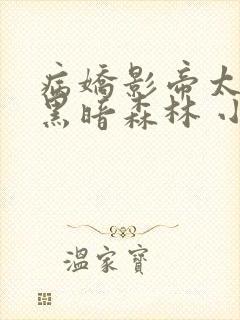 病嬌影帝太
黑暗森林 小
溫家寶